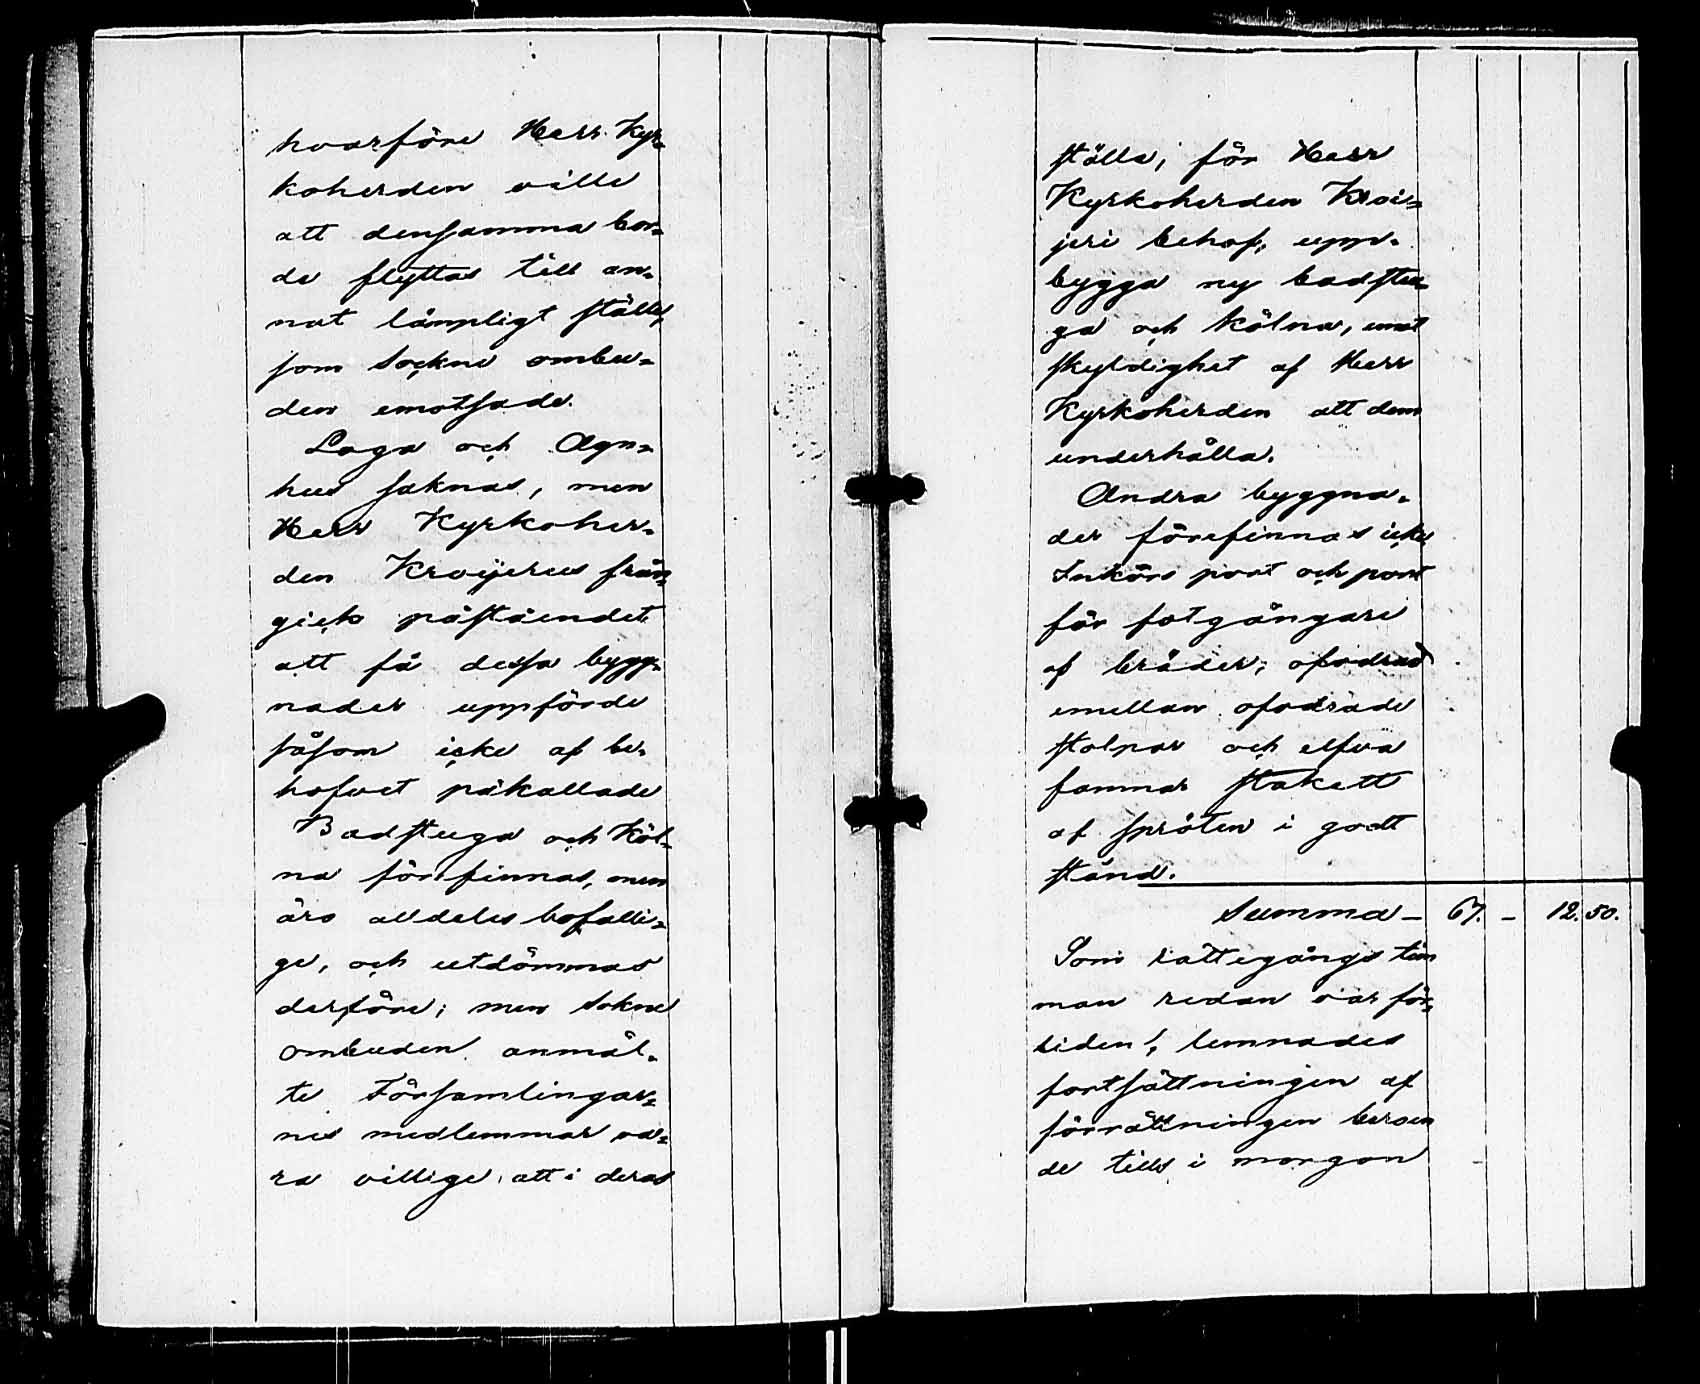 hvarföre Herr Kyr=
koherden ville
att densamma bor=
de flyttas till an=
nat lämpligt ställe,
som Sockne ombu=
den emotsade.
Loga och Agn=
hus saknas, men
Herr Kyrkoher=
den Kroijerus från=
gick påståendet
att få dessa bygg=
nader uppförde
såsom icke af be=
hofvet påkallade
Badstuga och Köl=
na förefinnas, men
äro alldeles bofälli=
ge, och utdömmas
derföre; men Sokne
ombuden anmäl=
te Församlingar=
nes medlemmar va=
ra villige att i deras
ställe, för Herr
Kyrkoherden Kroi=
jeri behof, upp=
bygga ny badstu=
ga och kölna, emot
skyldighet af Herr
Kyrkoherden att dem
underhålla.
Andra byggna=
der förefinnas icke
Inkörs port och port
för fotgångare
af bräder, ofodrad
emellan ofodrade
stolpar och elfva
famnar stakett
af spröten i godt
stånd.
Summa – 67. – 12. 50.
Som rättegångs tim
man redan var för=
liden, lemnades
fortsättningen af
förrättningen beroen
de tills i morgon